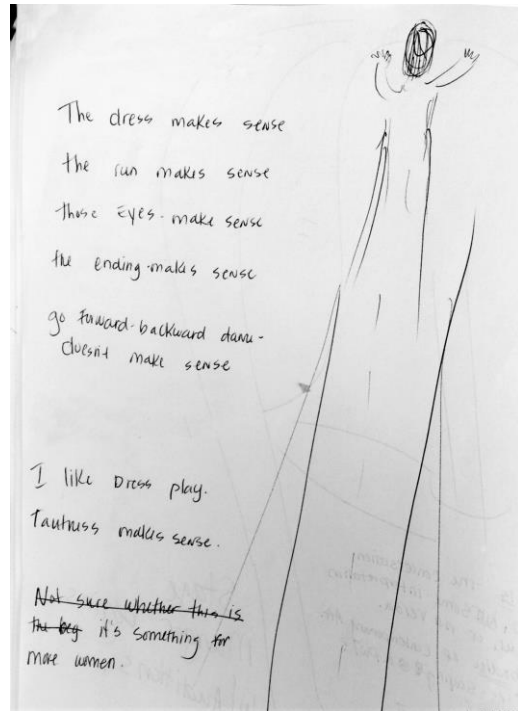 The dress makes sense
the run makes sense
those Eyes. make sense
the ending. makes sense
go forward-backward
doesn't make sense
I like Dress play.
Tautness makes sense.
Not sure whether this is
the beg it's something for
more women.